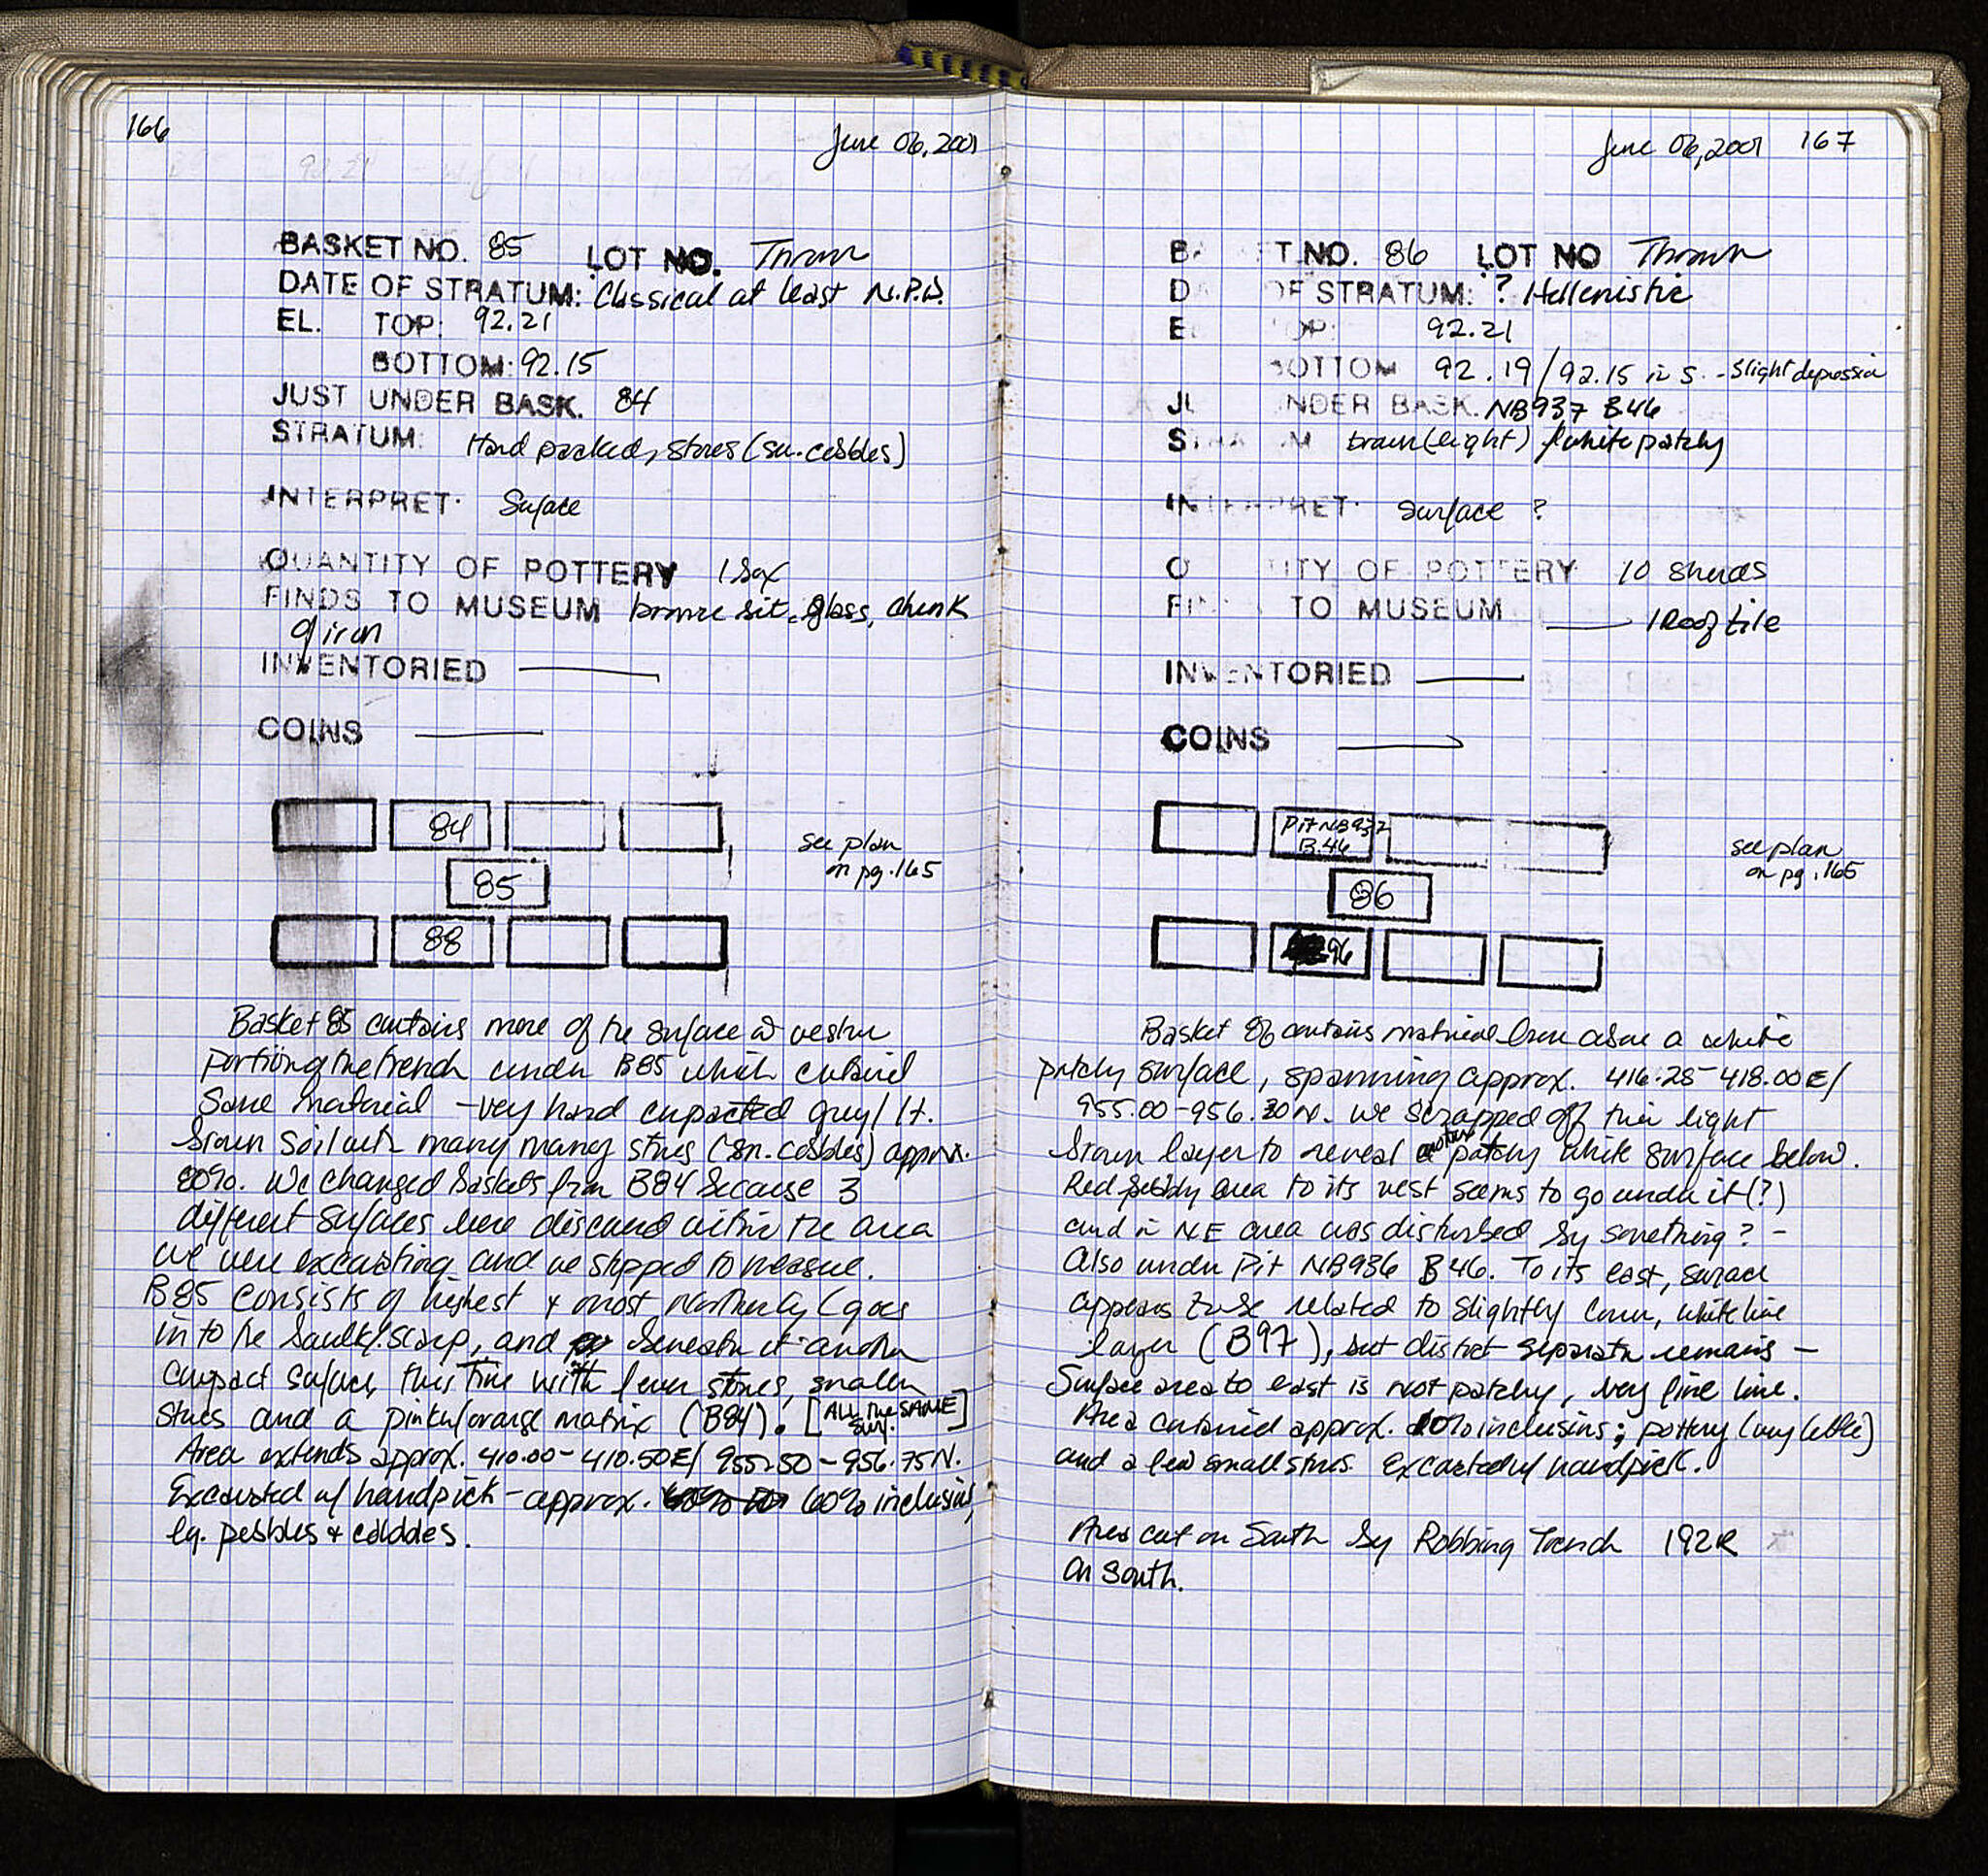 166
June 06, 2001
BASKET NO. 85 LOT NO. Thrown
DATE OF STRATUM: Classical at least N.P.D.
EL. TOP: 92.21
BOTTOM: 92.15
JUST UNDER BASK. 84
STRATUM: Hard packed, stones (sm. cobbles)
INTERPRET. Surface
QUANTITY OF POTTERY 1 Box
FINDS TO MUSEUM bronze bit, glass, chunk
of iron
INVENTORIED
COINS
84
85
88
see plan
on pg. 165
Basket 85 contains more of the surface in western
portion of the trench under B85 which contained
same material - very hard compacted grey/lt.
brown soil with many many stones (sm. cobbles) approx.
80%. We changed baskets from B84 because 3
different surfaces were discerned within the area
we were excavating and we stopped to measure.
B85 consists of highest & most northerly (goes
in to the baulk/scarp, and beneath it another
compact surface, this time with fewer stones, smaller
stones and a pinky/orange matrix (B84). [ALL the SAME surf.]
Area extends approx. 410.00 - 410.50 E/ 955.50 - 956.75 N.
Excavated w/ handpick - approx. 60% inclusions,
eg. pebbles & cobbles.
June 06, 2001 167
BASKET NO. 86 LOT NO Thrown
DATE OF STRATUM: ? Hellenistic
EL. TOP: 92.21
BOTTOM 92.19/92.15 in S. - slight depression
JUST UNDER BASK. NB937 B46
STRATUM brown (light) / white patchy
INTERPRET. Surface ?
QUANTITY OF POTTERY 10 sherds
FINDS TO MUSEUM 1 Roof tile
INVENTORIED
COINS
Pit NB937
B.46
86
96
see plan
on pg. 165
Basket 86 contains material from above a white
patchy surface, spanning approx. 416.25 - 418.00 E/
955.00 - 956.30 N. We scrapped off this light
brown layer to reveal another patchy white surface below.
Red pebbly area to its west seems to go under it (?)
and in NE area was disturbed by something? -
Also under Pit NB936 B46. To its east, surface
appears to be related to slightly lower, white lime
layer (B97), but distinct separation remains -
Surface area to east is not patchy, very fine lime.
Area contained approx. 10% inclusions; pottery (very little)
and a few small stones. Excavated w/ handpick.
Area cut on South by Robbing Trench 192R
on south.